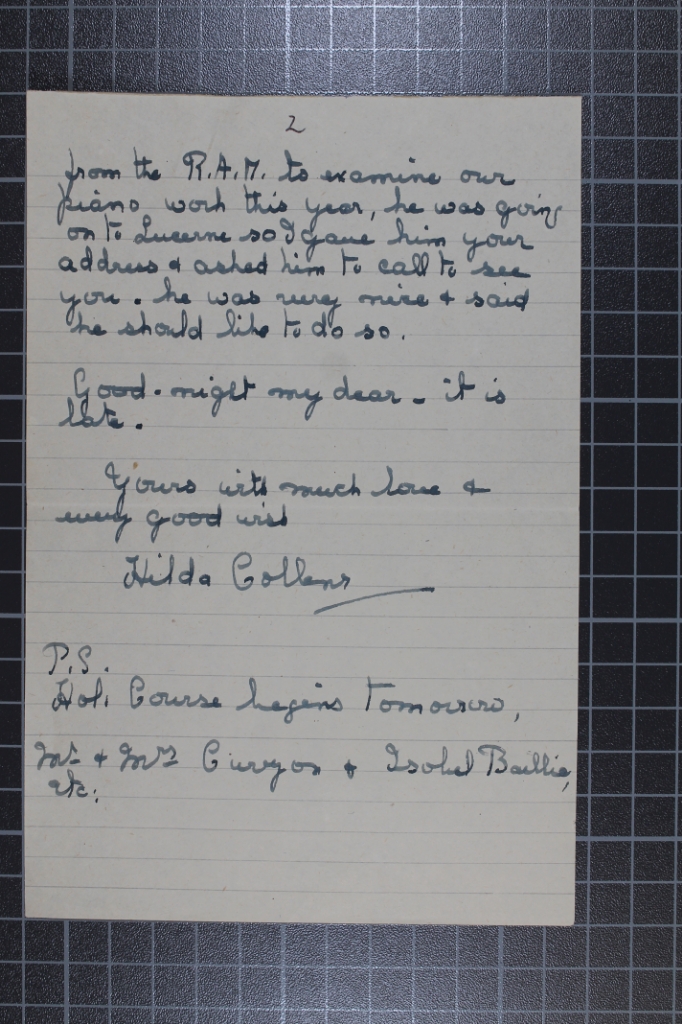 2
from the R.A.M. to examine our
piano work this year, he was going
on to Lucerne so I gave him your
address & asked him to call to see
you. he was very nice & said
he should like to do so.
Good-night my dear - it is
late.
Yours with much love &
every good wish
Hilda Collens
P.S.
Hol. Course begins tomorrow,
Mr & Mrs Curzon & Isobel Baillie,
etc.